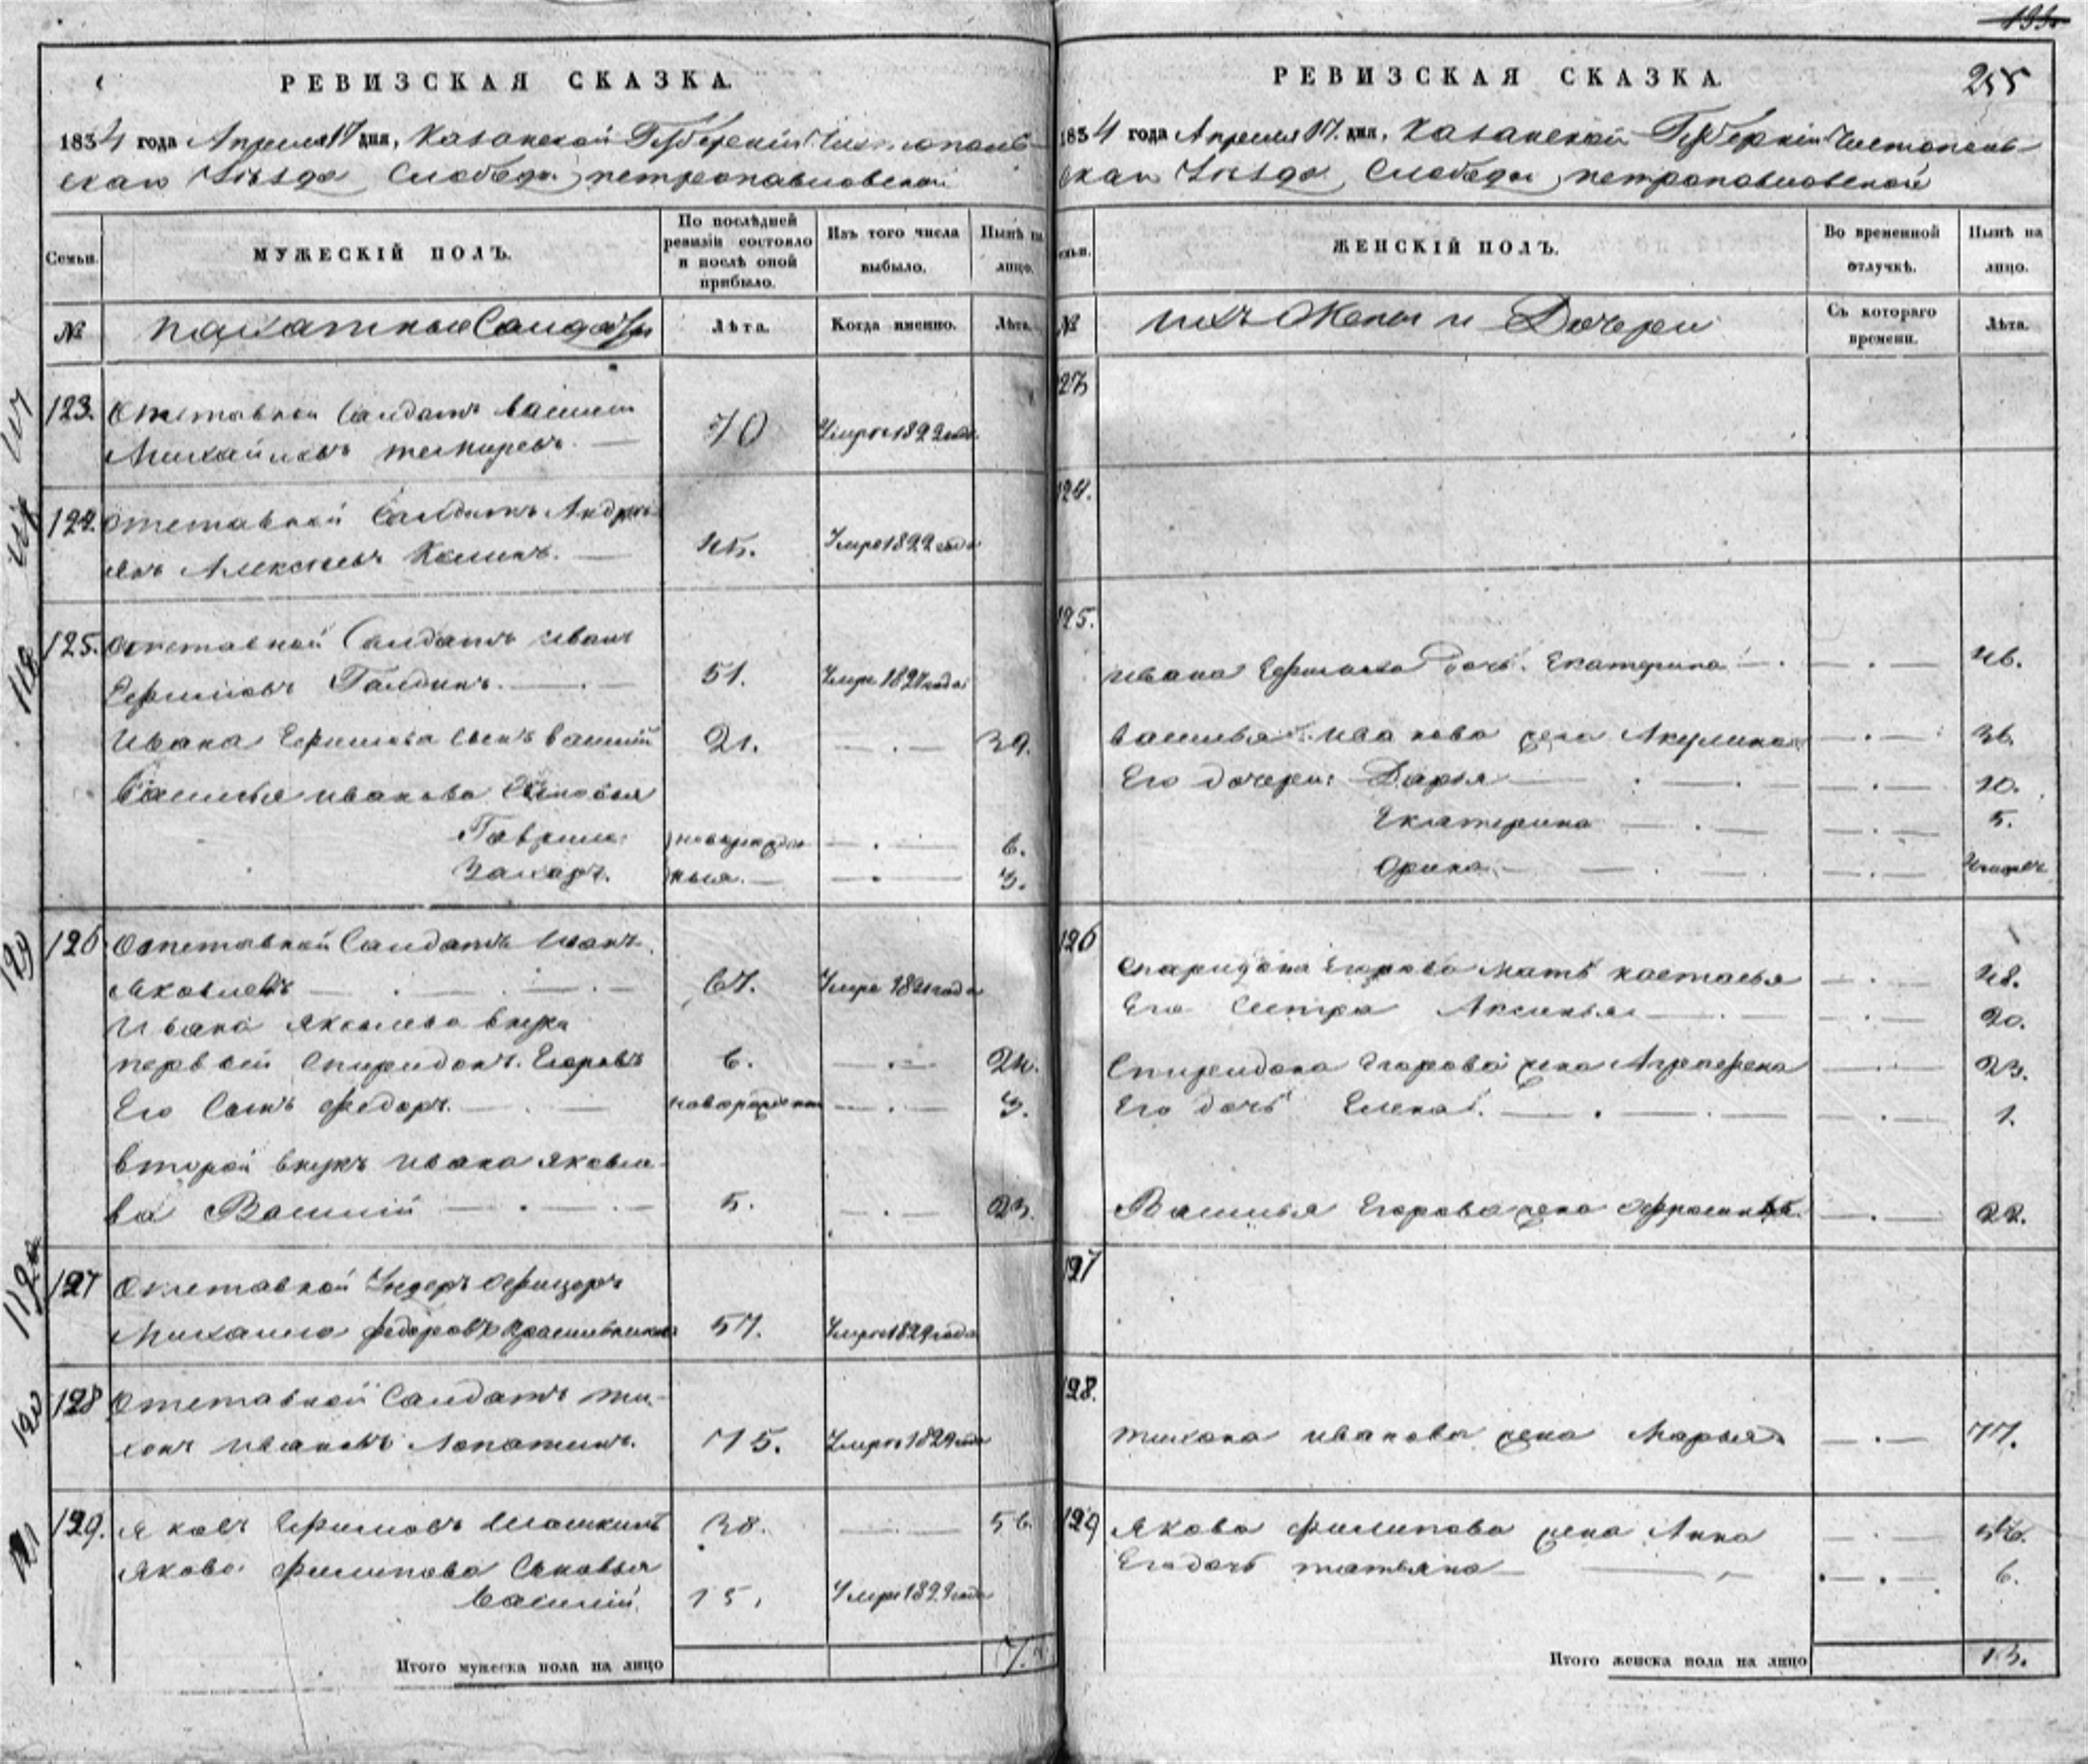 РЕВИЗСКАЯ СКАЗКА.
1834 года Апреля 17 дня, Казанской Губернии Чистополь-
скаго Уѣзда Слободы петропавловской
Семьи.
МУЖЕСКІЙ ПОЛЪ.
По послѣдней ревизіи состояло и послѣ оной прибыло.
Изъ того числа выбыло.
Нынѣ на лицо.
№
пахатные Солдаты
Лѣта.
Когда именно.
Лѣта.
123. Отставной Салдатъ Василій
Михайловъ 70 Умре 1822 года
124. отставной Салдатъ Андре-
янъ Алексѣевъ 45. Умре 1822 года
125. отставной Салдатъ Иванъ
Ефимовъ Галдинъ. 51. Умре 1827 года
Ивана Ефимова сынъ Василий 21. 39.
Василья иванова Сыновья
Гаврила новорожден 6.
Захаръ. ныя. 3.
126 Отставной Салдатъ Иванъ
Яковлевъ 67. Умре 1821 года
Ивана Яковлева внуки
первый Спиридонъ Егоровъ 6. 24.
Его Сынъ Федоръ. новорожден 3.
второй внукъ ивана яковле-
ва Василий 5. 23.
127 Отставной Ундеръ Офицеръ
Михайло Федоровъ 57. Умре 1829 года
128 Отставной Салдатъ ти-
хонъ ивановъ Лопатинъ. 75. Умре 1829 года
129. Яковъ 38. 56.
Якова Филипова Сыновья
Василий 15. Умре 1829 года
Итого мужеска пола на лицо 7.
255
РЕВИЗСКАЯ СКАЗКА.
1834 года Апреля 17. дня, Казанской Губернии Чистополь-
скаго Уѣзда, Слободы петропавловской
ЖЕНСКІЙ ПОЛЪ.
Во временной отлучкѣ.
Нынѣ на лицо.
№
ихъ Жены и Дочери
Съ котораго времени.
Лѣта.
123
124.
125.
ивана Ефимова дочь Екатерина 46.
Василья Иванова жена Акулина 36.
Его дочери: Дарья 10.
Екатерина 5.
Орина
126
Спиридона Егорова мать настасья 48.
Его Сестра Аксинья 20.
Спиридона Егорова жена Аграфена 23.
Его дочь Елена 1.
Василья Егорова жена Афросинья 22.
127
128.
тихона иванова жена Марья 77.
129 Якова Филипова жена Анна
Его дочь татьяна 6.
Итого женска пола на лицо 13.